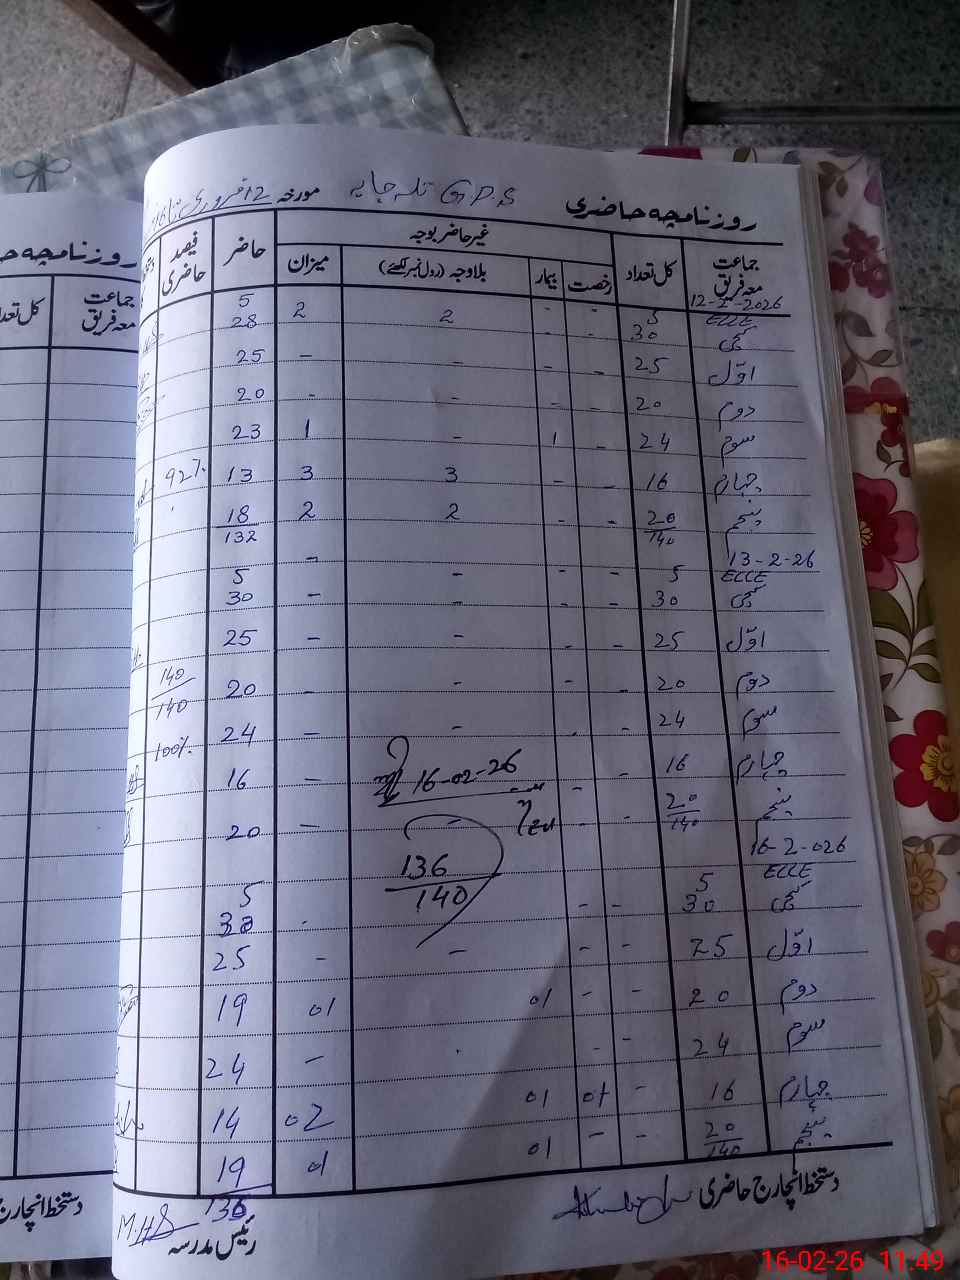 روزنامچہ حاضری G.P.S تلہ جابہ مورخہ 12 فروری تا 16
جماعت معہ فریق کل تعداد غیر حاضر بوجہ حاضر فیصد حاضری
رخصت بیمار بلاوجہ (رول نمبر لکھئے) میزان
12-2-2026
ECCE 5 - - 5
کچی 30 - - 2 2 28
اوّل 25 - - - - 25
دوم 20 - - - - 20
سوم 24 - 1 - 1 23
چہارم 16 - - 3 3 13 92%
پنجم 20 - - 2 2 18
140 132
13-2-26
ECCE 5 - - - - 5
کچی 30 - - - - 30
اوّل 25 - - - 25
دوم 20 - - - - 20 140/140
سوم 24 - - 24 100%
چہارم 16 - - 16
16-02-26
پنجم 20 - - - - 20
140
136
140
16-2-026
ECCE 5 5
کچی 30 - - 30
اوّل 25 - - - - 25
دوم 20 - - 01 01 19
سوم 24 - - - 24
چہارم 16 - 01 01 02 14
پنجم 20 - - 01 01 19
140 136
دستخط انچارج حاضری رئیس مدرسہ
M.HS
روزنامچہ حا
جماعت معہ فریق کل تعدا
دستخط انچارج
16-02-26 11:49